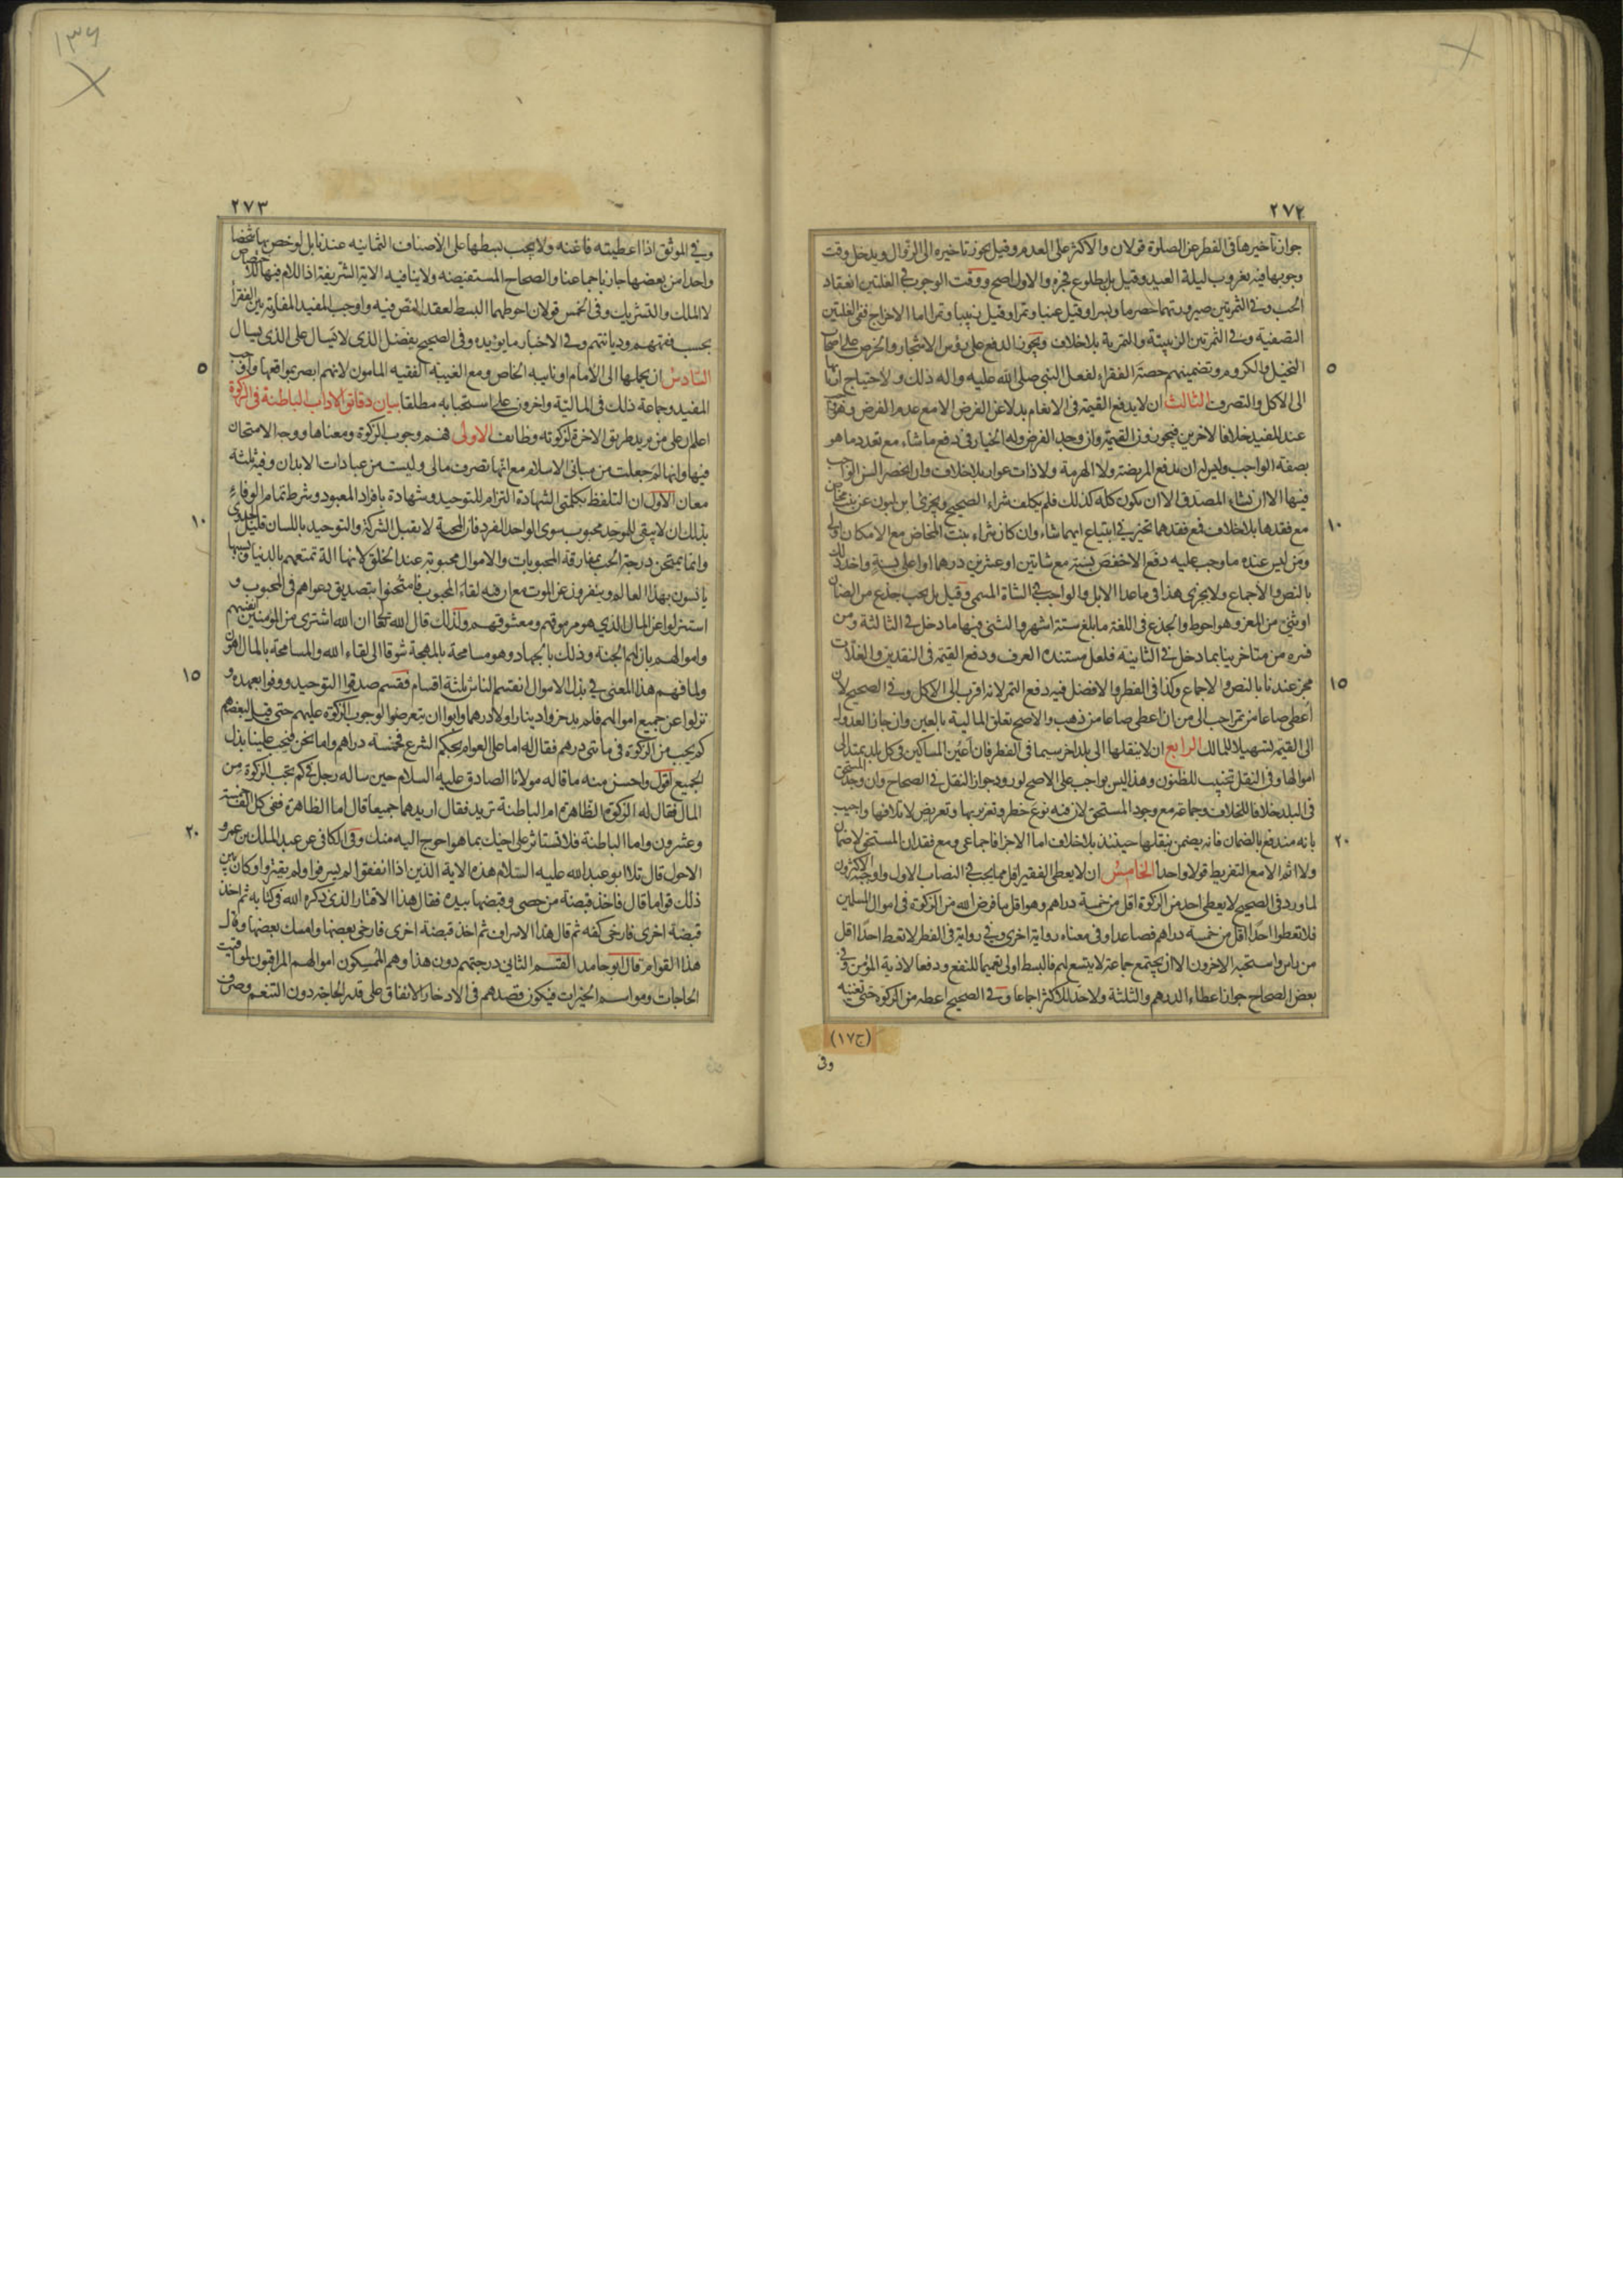 ٢٧٢
جواز تأخيرها فى الفطر عن الصلوة قولان والاكثر على العدم وقيل يجوز تاخيره الى الزوال ويدخل وقت
وجوبها فيه بغروب ليلة العيد وقيل بل بطلوع فجره والاول اصح ووقت الوجوب فى الغلتين انعقاد
الحب وفى الثمرتين صيرورتهما حصرما وبسرا وقيل عنبا وتمرا وقيل زبيبا وتمرا اما الاخراج ففى الغلتين
التصفية وفى الثمرتين الزبيبية والتمرية بلا خلاف ويجوز الدفع على رؤس الاشجار والخرص على اصحاب
النخيل والكروم وتضمينهم حصة الفقراء لفعل النبى صلى الله عليه واله ذلك ولاحتياج اربابها
٥
الى الاكل والتصرف الثالث ان لا يدفع القيمة فى الانعام بدلا عن الفرض الا مع عدم الفرض
عند المفيد خلافا لاخرين فيجوزون القيمة وان وجد الفرض وله الخيار فى دفع ماشاء مع تعدد ما هو
بصفة الواجب وليس له ان يدفع المريضة ولا الهرمة ولا ذات عوار بلا خلاف وان انحصر السن الواجب
فيها الا ان يشاء المصدق الا ان يكون كله كذلك فلم يكلف شراء الصحيح ويجزى ابن لبون عن بنت مخاض
مع فقدها بلا خلاف فمع فقدهما تخير فى ابتياع ايهما شاء وان كان شراء بنت المخاض مع الامكان اولى
١٠
ومن ليس عنده ما وجب عليه دفع الاخفض بسنة مع شاتين او عشرين درهما او اعلى بسنة واخذ ذلك
بالنص والاجماع ولا يجزى هذا فى ماعدا الابل والواجب فى الشاة المسمى وقيل بل يجب جذع من الضان
او ثنى من المعز وهو احوط والجذع فى اللغة ما بلغ ستة اشهر والثنى فيها ما دخل فى الثالثة ومن
فسره من متاخرينا بما دخل فى الثانية فلعل مستنده العرف ودفع القيمة فى النقدين والغلات
مجز عندنا بالنص والاجماع وكذا فى الفطر والافضل فيه دفع التمر لانه اقرب الى الاكل وفى الصحيح لان
١٥
اعطى صاعا من تمر احب الى من ان اعطى صاعا من ذهب والاصح تعلق المالية بالعين وان جاز العدول
الى القيمة تسهيلا للمالك الرابع ان لا ينقلها الى بلد اخر سيما فى الفطر فان اعين المساكين فى كل بلد يمتد الى
اموالها وفى النقل تخييب للظنون وهذا ليس بواجب على الاصح لورود جواز النقل فى الصحاح وان وجد المستحق
فى البلد خلافا للخلاف وجماعة مع وجود المستحق لان فيه نوع خطر وتغريربها وتعريض لاتلافها واجيب
بانه مندفع بالضمان فانه يضمن بنقلها حينئذ بلا خلاف اما الاجزا فاجماعى ومع فقدان المستحق لا ضمان
٢٠
ولا اثم الا مع التفريط قولا واحدا الخامس ان لا يعطى الفقير اقل مما يجب فى النصاب الاول واوجبه الاكثرون
لما ورد فى الصحيح لا يعطى احد من الزكوة اقل من خمسة دراهم وهو اقل ما فرض الله من الزكوة فى اموال المسلمين
فلا تعطوا احدا اقل من خمسة دراهم فصاعدا وفى معناه رواية اخرى وفى رواية فى الفطر لا تعط احدا اقل
من راس واستحبه الاخرون الا ان يجتمع جماعة لا يتسع لهم فالبسط اولى تعميما للنفع ودفعا لاذية المؤمن وفى
بعض الصحاح جواز اعطاء الدرهم والثلثة ولا حد للاكثر اجماعا وفى الصحيح اعطه من الزكوة حتى تغنيه
(ج١٧)
وفى
١٣٦
٢٧٣
وفى الموثق اذا اعطيته فاغنه ولا يجب بسطها على الاصناف الثمانيه عندنا بل لو خص بها شخصا
واحدا من بعضها جاز باجماعنا والصحاح المستفيضه ولا ينافيه الاية الشريفة اذ اللام فيها للاختصاص
لا الملك والتشريك وفى الخمس قولان احوطهما البسط لعقد النص فيه واوجب المفيد المفاوتة بين الفقرا
بحسب فقههم وديانتهم وفى الاخبار ما يؤيده وفى الصحيح يفضل الذى لا يسال على الذى يسال
السادس ان يحملها الى الامام او نايبه الخاص ومع الغيبة الفقيه المامون لانهم ابصر بمواقعها واوجب
٥
المفيد وجماعة ذلك فى المالية واخرون على استحبابه مطلقا بيان دقائق الاداب الباطنة فى الزكوة
اعلم ان على من يريد طريق الاخرة لزكوته وظايف الاولى فهم وجوب الزكوة ومعناها ووجه الامتحان
فيها وانها لم جعلت من مبانى الاسلام مع انها تصرف مالى وليست من عبادات الابدان وفيه ثلثة
معان الاول ان التلفظ بكلمتى الشهادة التزام للتوحيد وشهادة بافراد المعبود وشرط تمام الوفاء
بذلك ان لا يبقى للموحد محبوب سوى الواحد الفرد فان المحبة لا يقبل الشركة والتوحيد باللسان قليل الجدوى
١٠
وانما يمتحن درجة الحب بمفارقة المحبوبات والاموال محبوبة عند الخلق لانها الة تمتعهم بالدنيا وبسببها
يانسون بهذا العالم وينفرون عن الموت مع ان فيه لقاء المحبوب فامتحنوا بتصديق دعواهم فى المحبوب و
استنزلوا عن المال الذى هو مرموقهم ومعشوقهم ولذلك قال الله تعالى ان الله اشترى من المؤمنين انفسهم
واموالهم بان لهم الجنة وذلك بالجهاد وهو مسامحة بالمهجة شوقا الى لقاء الله والمسامحة بالمال اهون
ولما فهم هذا المعنى فى بذل الاموال انقسم الناس ثلثة اقسام فقسم صدقوا التوحيد ووفوا بعهده و
١٥
نزلوا عن جميع اموالهم فلم يدخروا دينارا ولا درهما وابوا ان يتعرضوا لوجوب الزكوة عليهم حتى قيل لبعضهم
كم يجب من الزكوة فى ماتى درهم فقال له اما على العوام بحكم الشرع فخمسة دراهم واما نحن فيجب علينا بذل
الجميع اقول واحسن منه ما قاله مولانا الصادق عليه السلام حين ساله رجل فى كم تجب الزكوة من
المال فقال له الزكوة الظاهرة ام الباطنة تريد فقال اريدهما جميعا قال اما الظاهرة ففى كل الف خمسة
وعشرون واما الباطنة فلا تستاثر على اخيك بما هو احوج اليه منك وفى الكافى عن عبد الملك بن عمرو
٢٠
الاحول قال تلا ابو عبدالله عليه السلام هذه الاية الذين اذا انفقوا لم يسرفوا ولم يقتروا وكان بين
ذلك قواما قال فاخذ قبضة من حصى وقبضها بيده فقال هذا الاقتار الذى ذكره الله فى كتابه ثم اخذ
قبضة اخرى فارخى كفه ثم قال هذا الاسراف ثم اخذ قبضة اخرى فارخى بعضها وامسك بعضها وقال
هذا القوام قال ابوحامد القسم الثانى درجتهم دون هذا وهم الممسكون اموالهم المراقبون لمواقيت
الحاجات ومواسم الخيرات فيكون قصدهم فى الادخار الانفاق على قدر الحاجة دون التنعم وصرف